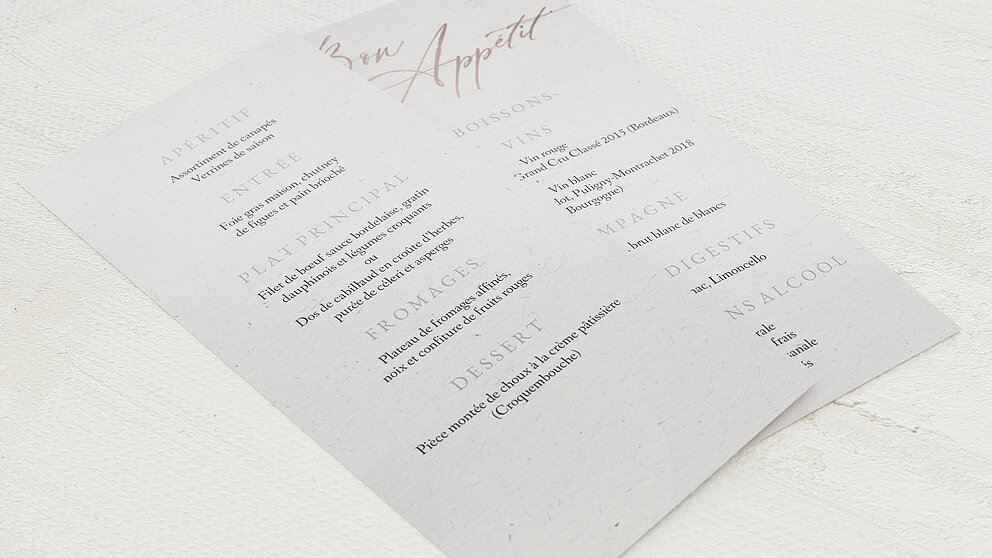 Bon Appétit
APÉRITIF
Assortiment de canapés
Verrines de saison
ENTRÉE
Foie gras maison, chutney
de figues et pain brioché
PLAT PRINCIPAL
Filet de bœuf sauce bordelaise, gratin
dauphinois et légumes croquants
ou
Dos de cabillaud en croûte d'herbes,
purée de céleri et asperges
FROMAGES
Plateau de fromages affinés,
noix et confiture de fruits rouges
DESSERT
Pièce montée de choux à la crème pâtissière
(Croquembouche)
BOISSONS
VINS
Vin rouge
Grand Cru Classé 2015 (Bordeaux)
Vin blanc
lot, Puligny-Montrachet 2018
Bourgogne)
MPAGNE
brut blanc de blancs
DIGESTIFS
nac, Limoncello
NS ALCOOL
tale
frais
anale
s